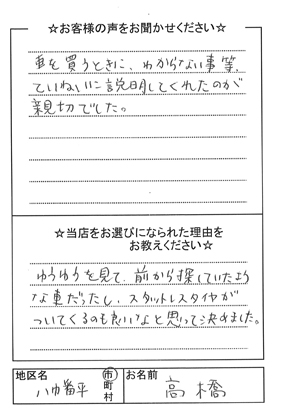 ☆お客様の声をお聞かせください☆
車を買うときに、わからない事等、
ていねいに説明してくれたのが
親切でした。
☆当店をお選びになられた理由を
お教えください☆
ゆうゆうを見て、前から探していたよう
な車だったし、スタットレスタイヤが
ついてくるのも良いなと思って決めました。
地区名 市 町 村 お名前
八幡平 高橋